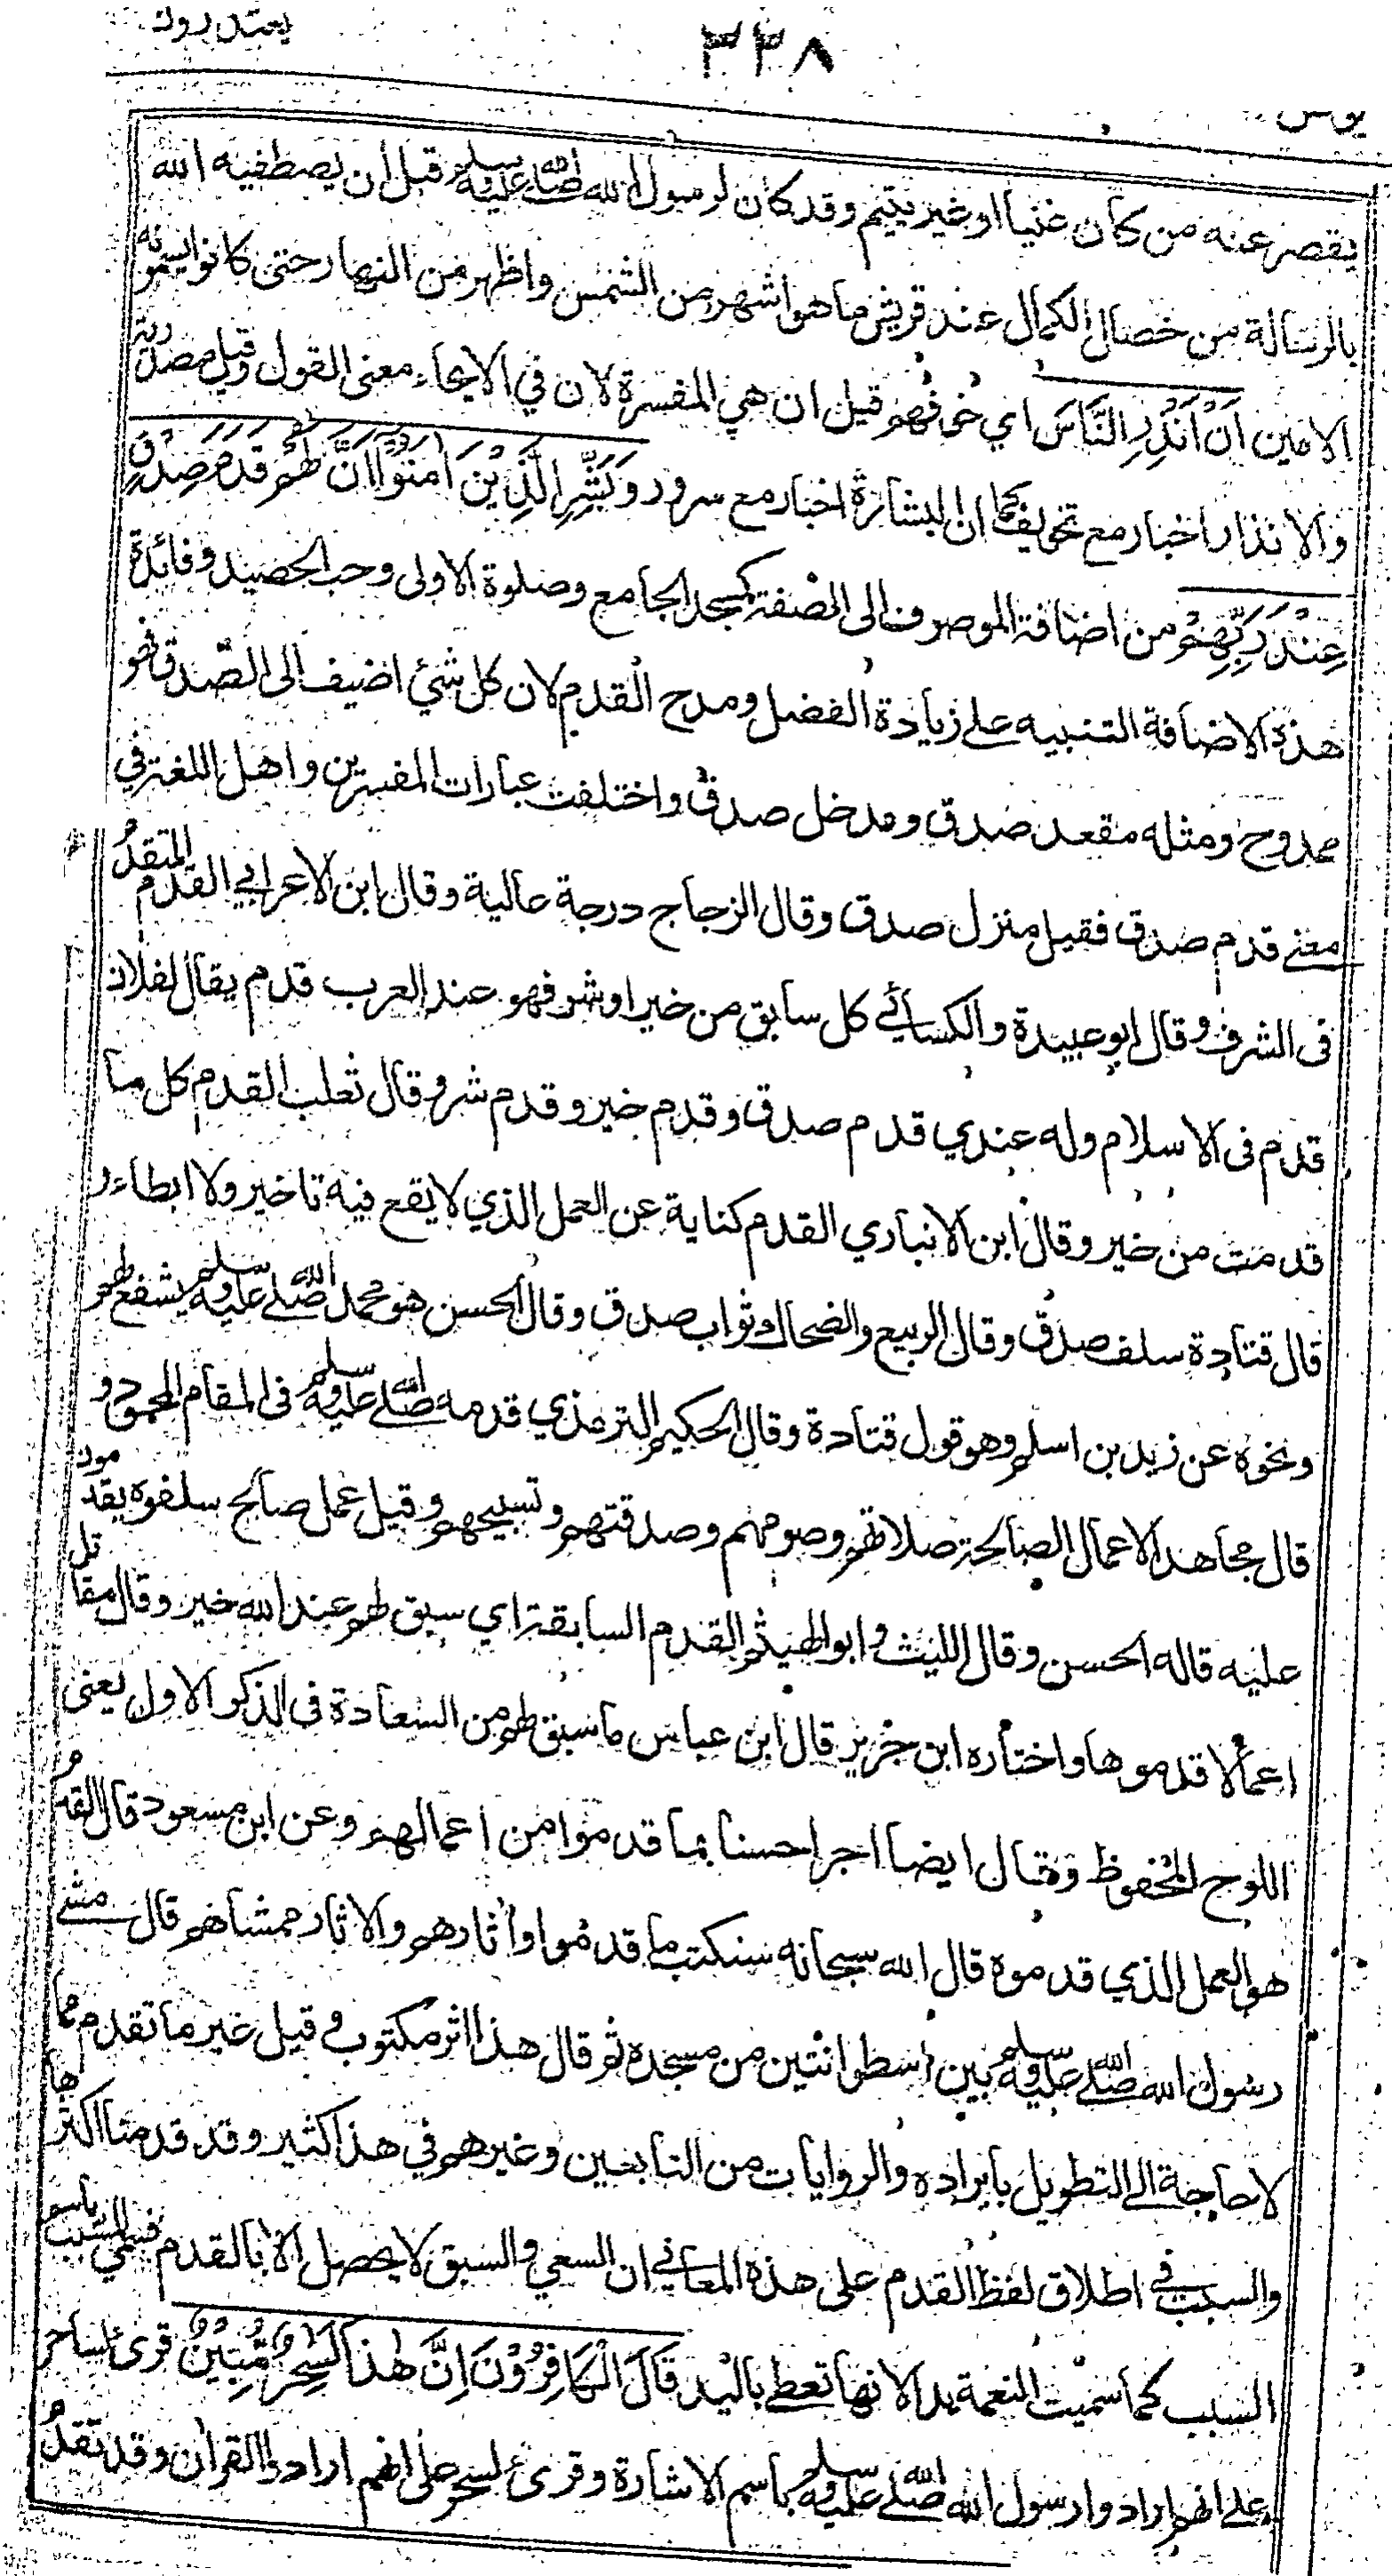 يعتذرون
٣٣٨
يونس
يقصر عنه من كان غنيا او غير يتيم وقد كان لرسول الله صلى الله عليه وسلم قبل ان يصطفيه الله
بالرسالة من خصال الكمال عند قريش ما هو اشهر من الشمس واظهر من النهار حتى كانوا يسمونه
الامين اَنْ اَنْذِرِ النَّاسَ اي خوفهم قيل ان هي المفسرة لان في الايحاء معنى القول وقيل مصدرية
والانذار اخبار مع تخويف كما ان البشارة اخبار مع سرور وَبَشِّرِ الَّذِيْنَ اٰمَنُوْٓا اَنَّ لَهُمْ قَدَمَ صِدْقٍ
عِنْدَ رَبِّهِمْ من اضافة الموصوف الى الصفة كمسجد الجامع وصلوة الاولى وحب الحصيد وفائدة
هذه الاضافة التنبيه على زيادة الفضل ومدح القدم لان كل شئ اضيف الى الصدق فهو
ممدوح ومثله مقعد صدق ومدخل صدق واختلفت عبارات المفسرين واهل اللغة في
معنى قدم صدق فقيل منزل صدق وقال الزجاج درجة عالية وقال ابن الاعرابي القدم المتقدم
فى الشرف وقال ابو عبيدة والكسائي كل سابق من خير او شر فهو عند العرب قدم يقال لفلان
قدم فى الاسلام وله عندي قدم صدق وقدم خير وقدم شر وقال ثعلب القدم كل ما
قدمت من خير وقال ابن الانباري القدم كناية عن العمل الذي لا يقع فيه تاخير ولا ابطاء و
قال قتادة سلف صدق وقال الربيع والضحاك ثواب صدق وقال الحسن هو محمد صلى الله عليه وسلم يشفع لهم
ونحوه عن زيد بن اسلم وهو قول قتادة وقال الحكيم الترمذي قدمه صلى الله عليه وسلم فى المقام المحمود و
قال مجاهد الاعمال الصالحة صلاتهم وصومهم وصدقتهم وتسبيحهم وقيل عمل صالح سلفوه يقدمون
عليه قاله الحسن وقال الليث وابو الهيثم القدم السابقة اي سبق لهم عند الله خير وقال مقاتل
اعمالا قدموها واختاره ابن جرير قال ابن عباس ما سبق لهم من السعادة فى الذكر الاول يعني
اللوح المحفوظ وقال ايضا اجرا حسنا بما قدموا من اعمالهم وعن ابن مسعود قال القدم
هو العمل الذي قدموه قال الله سبحانه سنكتب ما قدموا واٰثارهم والاثار ممشاهم قال مشى
رسول الله صلى الله عليه وسلم بين اسطوانتين من مسجده ثم قال هذا اثر مكتوب وقيل غير ما تقدم مما
لا حاجة الى التطويل بايراده والروايات من التابعين وغيرهم في هذا كثير وقد قدمنا اكثرها
والسبب في اطلاق لفظ القدم على هذه المعاني ان السعي والسبق لا يحصل الا بالقدم فسمي المسبب باسم
السبب كما سميت النعمة يدا لانها تعطى باليد قَالَ الْكَافِرُوْنَ اِنَّ هٰذَا لَسِحْرٌ مُّبِيْنٌ قرئ لساحر
على انهم ارادوا رسول الله صلى الله عليه وسلم باسم الاشارة وقرئ لسحر على انهم ارادوا القران وقد تقدم